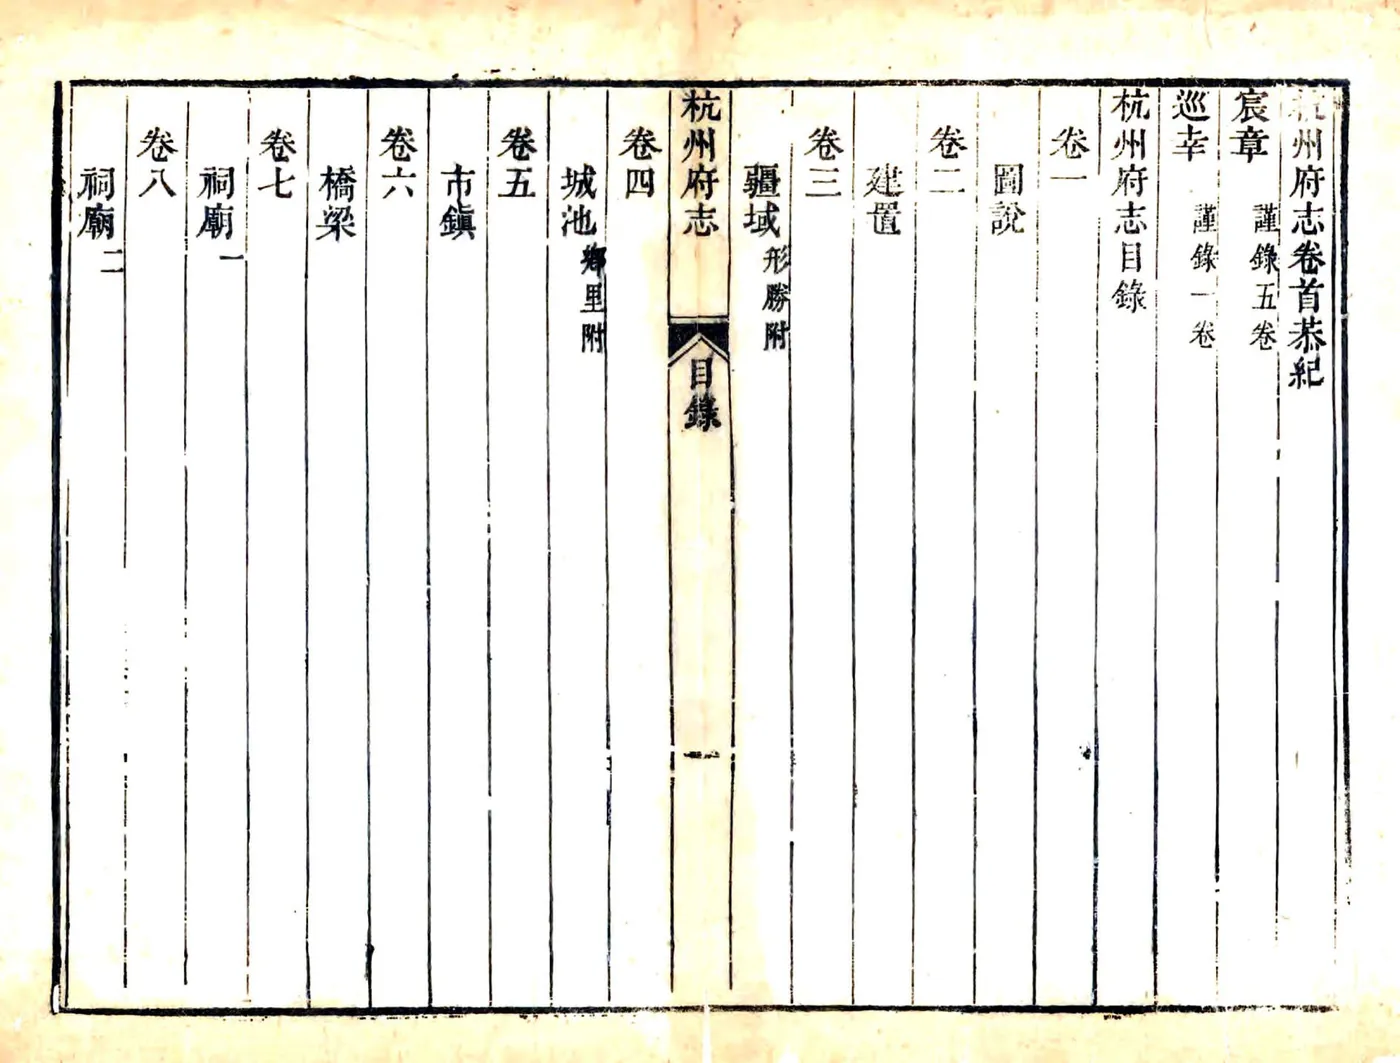 杭州府志卷首恭紀
宸章 謹錄五卷
巡幸 謹錄一卷
杭州府志目錄
卷一
圖說
卷二
建置
卷三
疆域 形勝附
杭州府志 目錄 一
卷四
城池 鄉里附
卷五
市鎮
卷六
橋梁
卷七
祠廟一
卷八
祠廟二